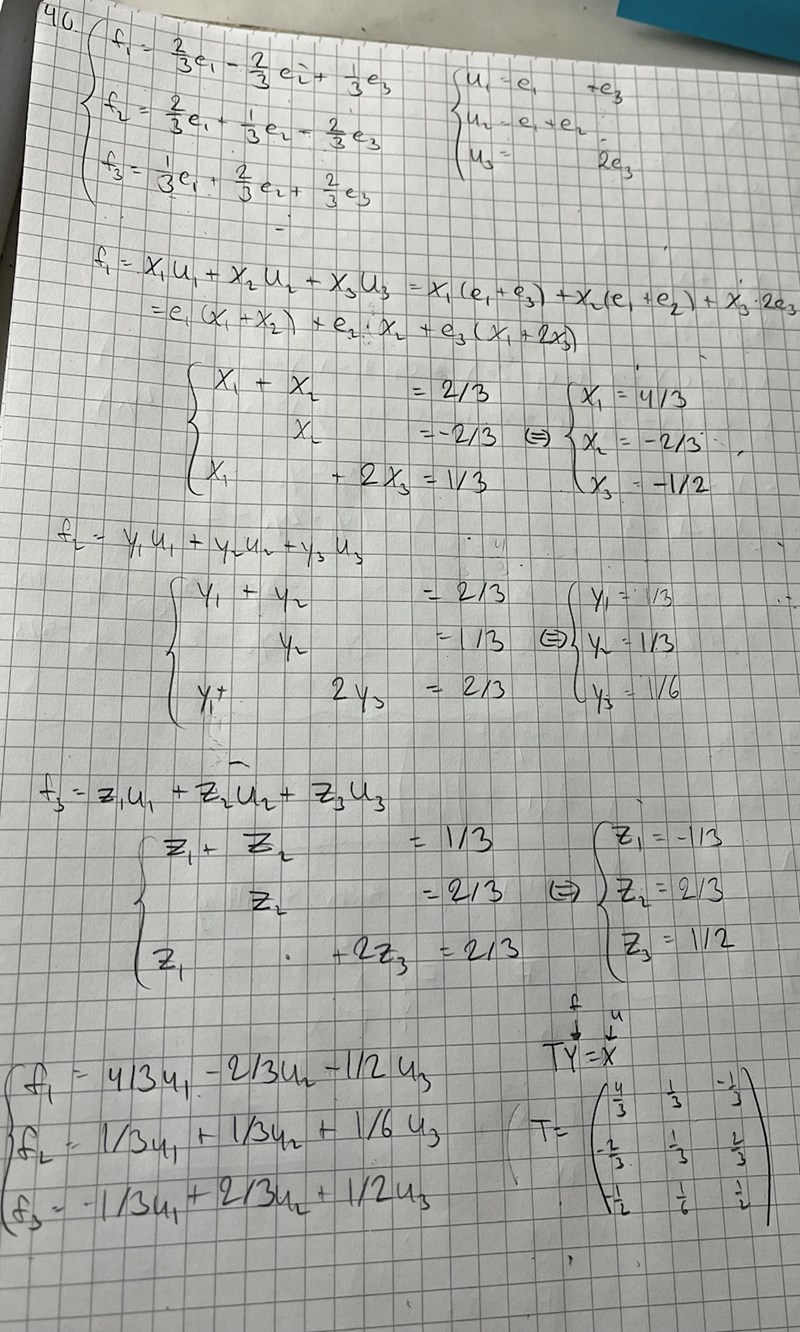 46.
f₁ = 2/3 e₁ - 2/3 e₂ + 1/3 e₃
f₂ = 2/3 e₁ + 1/3 e₂ - 2/3 e₃
f₃ = 1/3 e₁ + 2/3 e₂ + 2/3 e₃
u₁ = e₁ + e₃
u₂ = e₁ + e₂
u₃ = 2e₃
f₁ = x₁u₁ + x₂u₂ + x₃u₃ = x₁(e₁+e₃) + x₂(e₁+e₂) + x₃·2e₃
= e₁(x₁+x₂) + e₂·x₂ + e₃(x₁+2x₃)
x₁ + x₂ = 2/3 x₁ = 4/3
x₂ = -2/3 ⇔ x₂ = -2/3
x₁ + 2x₃ = 1/3 x₃ = -1/2
f₂ = y₁u₁ + y₂u₂ + y₃u₃
y₁ + y₂ = 2/3 y₁ = 1/3
y₂ = 1/3 ⇔ y₂ = 1/3
y₁+ 2y₃ = 2/3 y₃ = 1/6
f₃ = z₁u₁ + z₂u₂ + z₃u₃
z₁ + z₂ = 1/3 z₁ = -1/3
z₂ = 2/3 ⇔ z₂ = 2/3
z₁ + 2z₃ = 2/3 z₃ = 1/2
f₁ = 4/3u₁ - 2/3u₂ - 1/2u₃
f₂ = 1/3u₁ + 1/3u₂ + 1/6u₃
f₃ = -1/3u₁ + 2/3u₂ + 1/2u₃
f u
↓ ↓
TY = X
4/3 1/3 -1/3
T = -2/3 1/3 2/3
-1/2 1/6 1/2